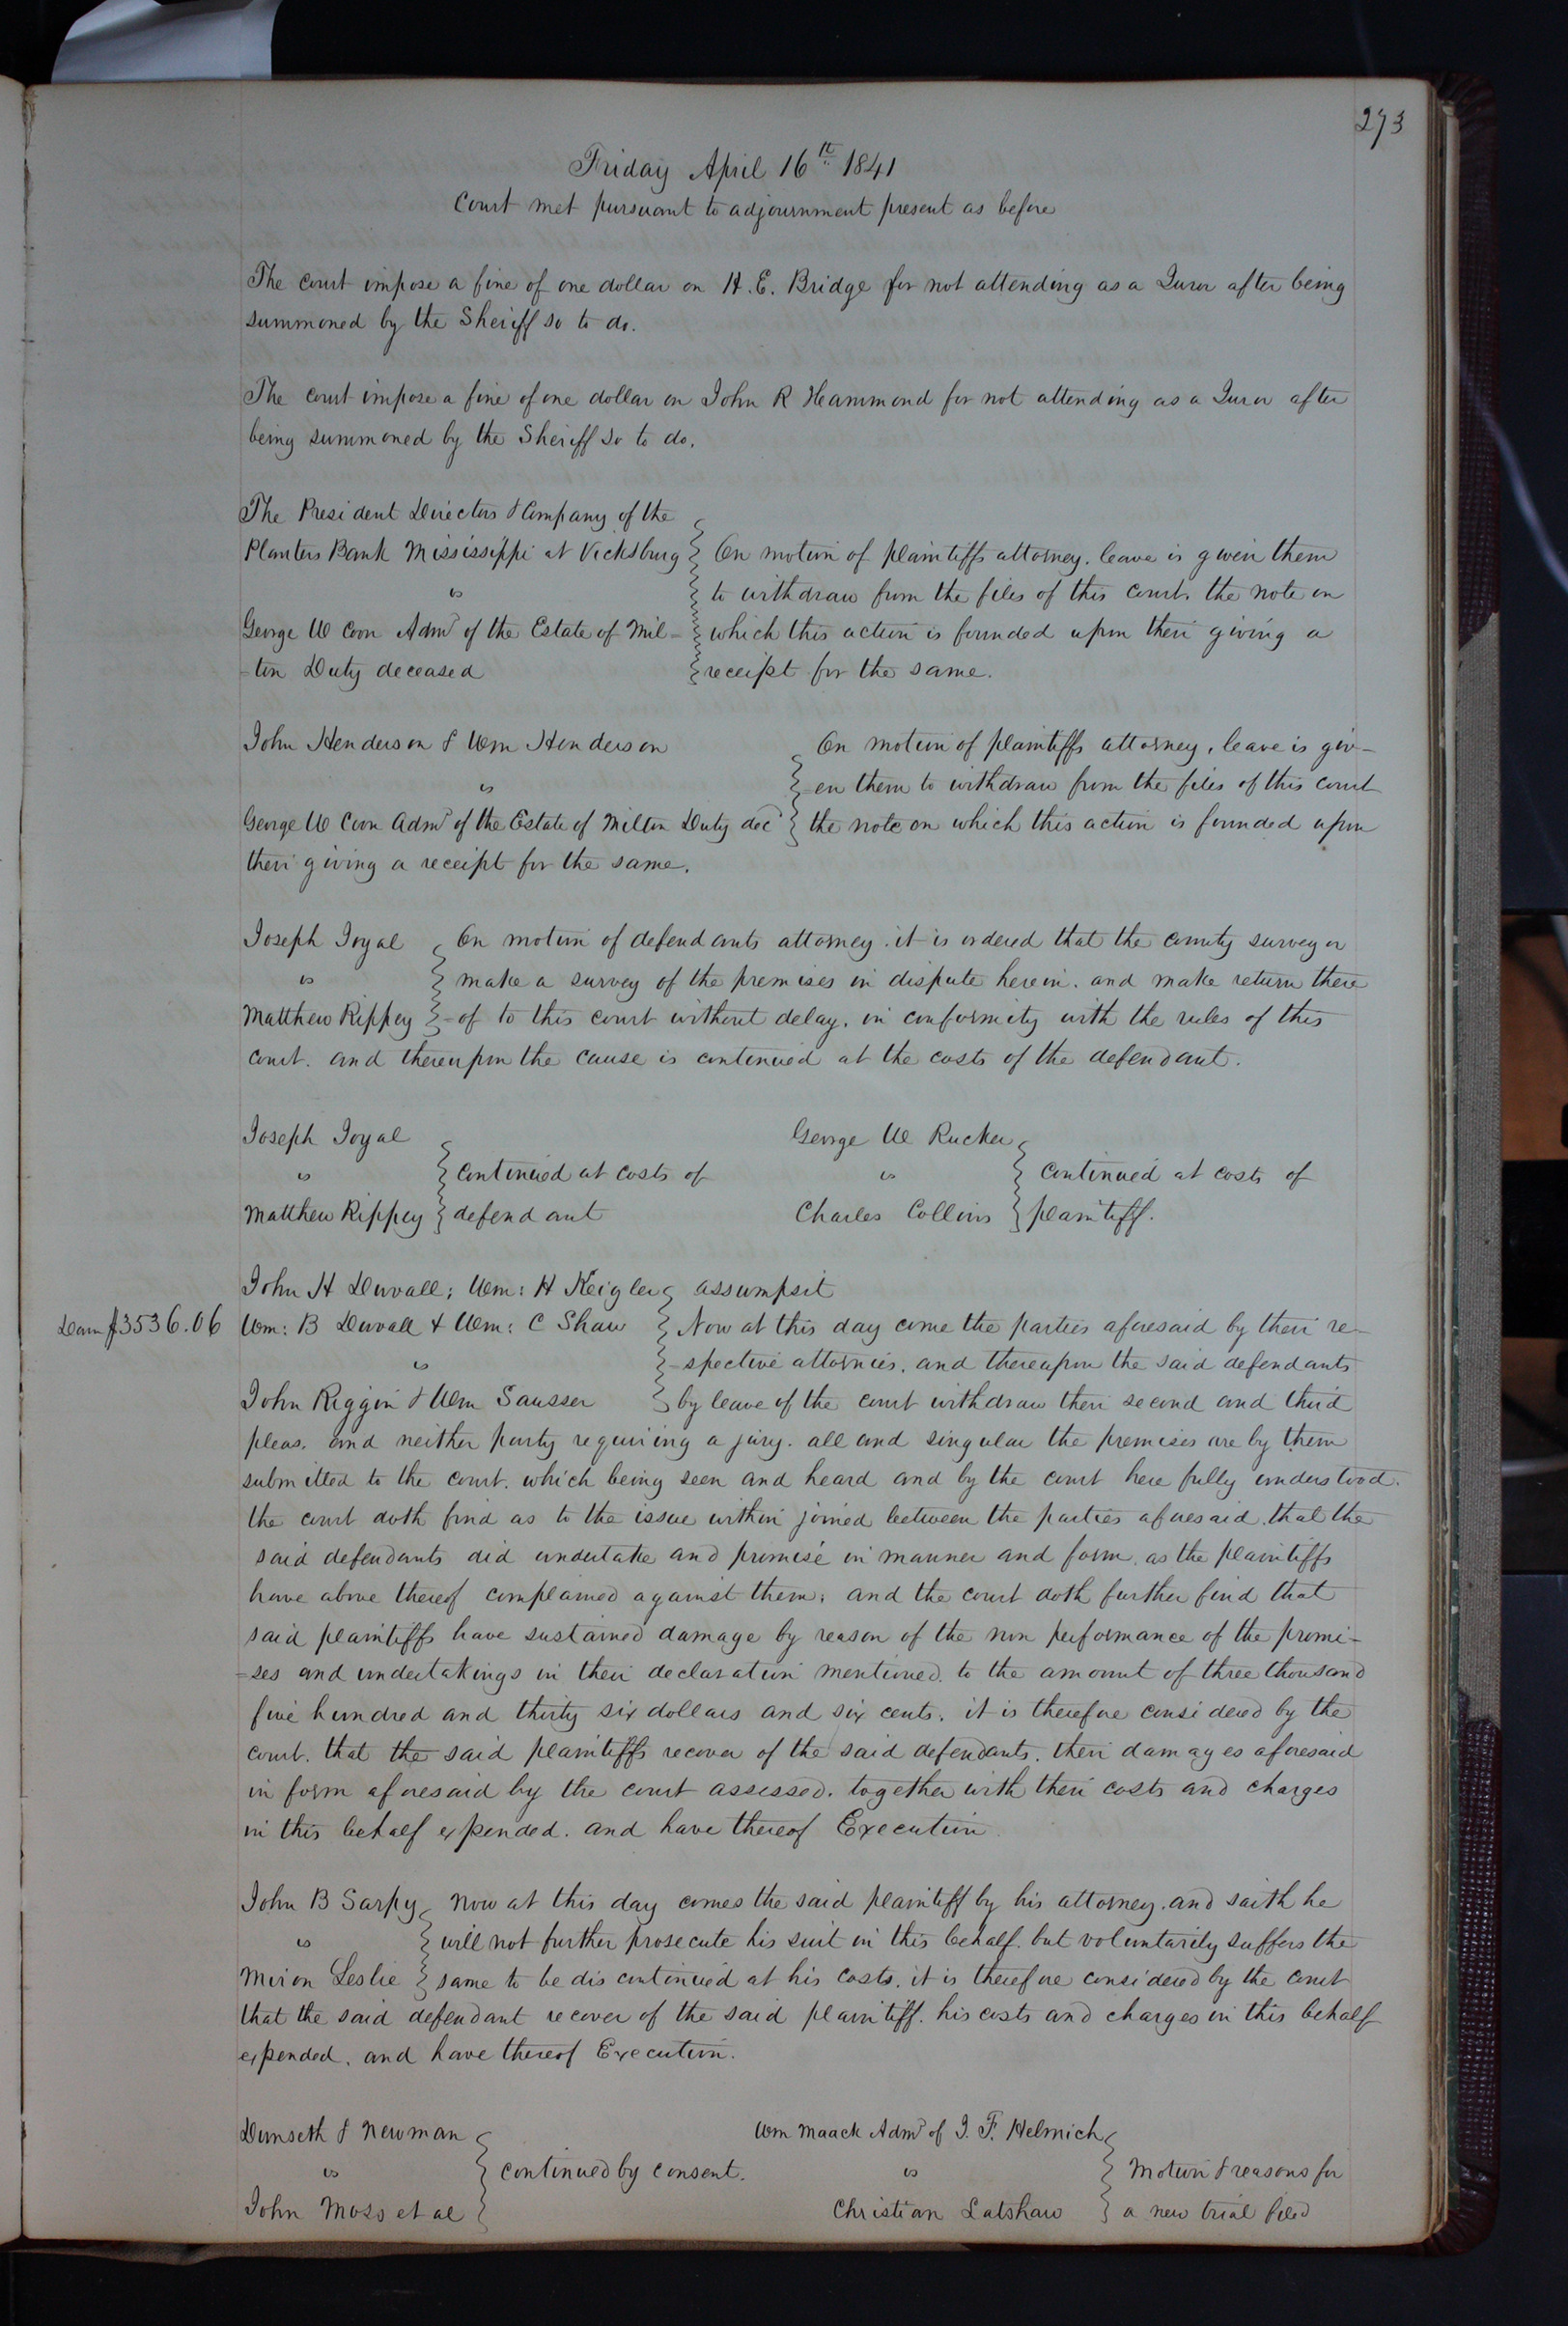 273
Friday April 16th 1841
Court met pursuant to adjournment present as before
The court impose a fine of one dollar on H. E. Bridge for not attending as a Juror after being
summoned by the Sheriff so to do.
The court impose a fine of one dollar on John R Hammond for not attending as a Juror after
being summoned by the Sheriff so to do.
The President Directors & Company of the
Planters Bank Mississippi at Vicksburg
vs
George W Coon Admr of the Estate of Mil-
-ton Duty deceased
On motion of plaintiffs attorney. leave is given them
to withdraw from the files of this court. the note on
which this action is founded upon their giving a
receipt for the same.
John Henderson & Wm Henderson
vs
George W Coon Admr of the Estate of Milton Duty decd
On motion of plaintiffs attorney, leave is giv-
-en them to withdraw from the files of this court
the note on which this action is founded upon
their giving a receipt for the same.
Joseph Joyal
vs
Matthew Rippey
On motion of defendants attorney. it is ordered that the county surveyor
make a survey of the premises in dispute herein. and make return there
-of to this court without delay. in conformity with the rules of this
court. and thereupon the cause is continued at the costs of the defendant.
Joseph Joyal
vs
Matthew Rippey
continued at costs of
defendant
George W Rucker
vs
Charles Collins
continued at costs of
plaintiff.
John H Duvall; Wm: H Keigler
Dam $3536.06
Wm: B Duvall & Wm: C Shaw
vs
John Riggin & Wm Sausser
assumpsit
Now at this day come the parties aforesaid by their re-
-spective attornies. and thereupon the said defendants
by leave of the court withdraw their second and third
pleas. and neither party requiring a jury. all and singular the premises are by them
submitted to the court. which being seen and heard and by the court here fully understood.
the court doth find as to the issue within joined between the parties aforesaid. that the
said defendants did undertake and promise in manner and form. as the plaintiffs
have above thereof complained against them; and the court doth further find that
said plaintiffs have sustained damage by reason of the non performance of the promi-
-ses and undertakings in their declaration mentioned. to the amount of three thousand
five hundred and thirty six dollars and six cents. it is therefore considered by the
court. that the said plaintiffs recover of the said defendants. their damages aforesaid
in form aforesaid by the court assessed. together with their costs and charges
in this behalf expended. and have thereof Execution
John B Sarpy
vs
Miron Leslie
Now at this day comes the said plaintiff by his attorney. and saith he
will not further prosecute his suit in this behalf. but voluntarily suffers the
same to be discontinued at his costs. it is therefore considered by the court
that the said defendant recover of the said plaintiff. his costs and charges in this behalf
expended. and have thereof Execution.
Dunseth & Newman
vs
John Moss et al
continued by consent.
Wm Maack Admr of J. F. Helmich
vs
Christian Latshaw
Motion & reasons for
a new trial filed